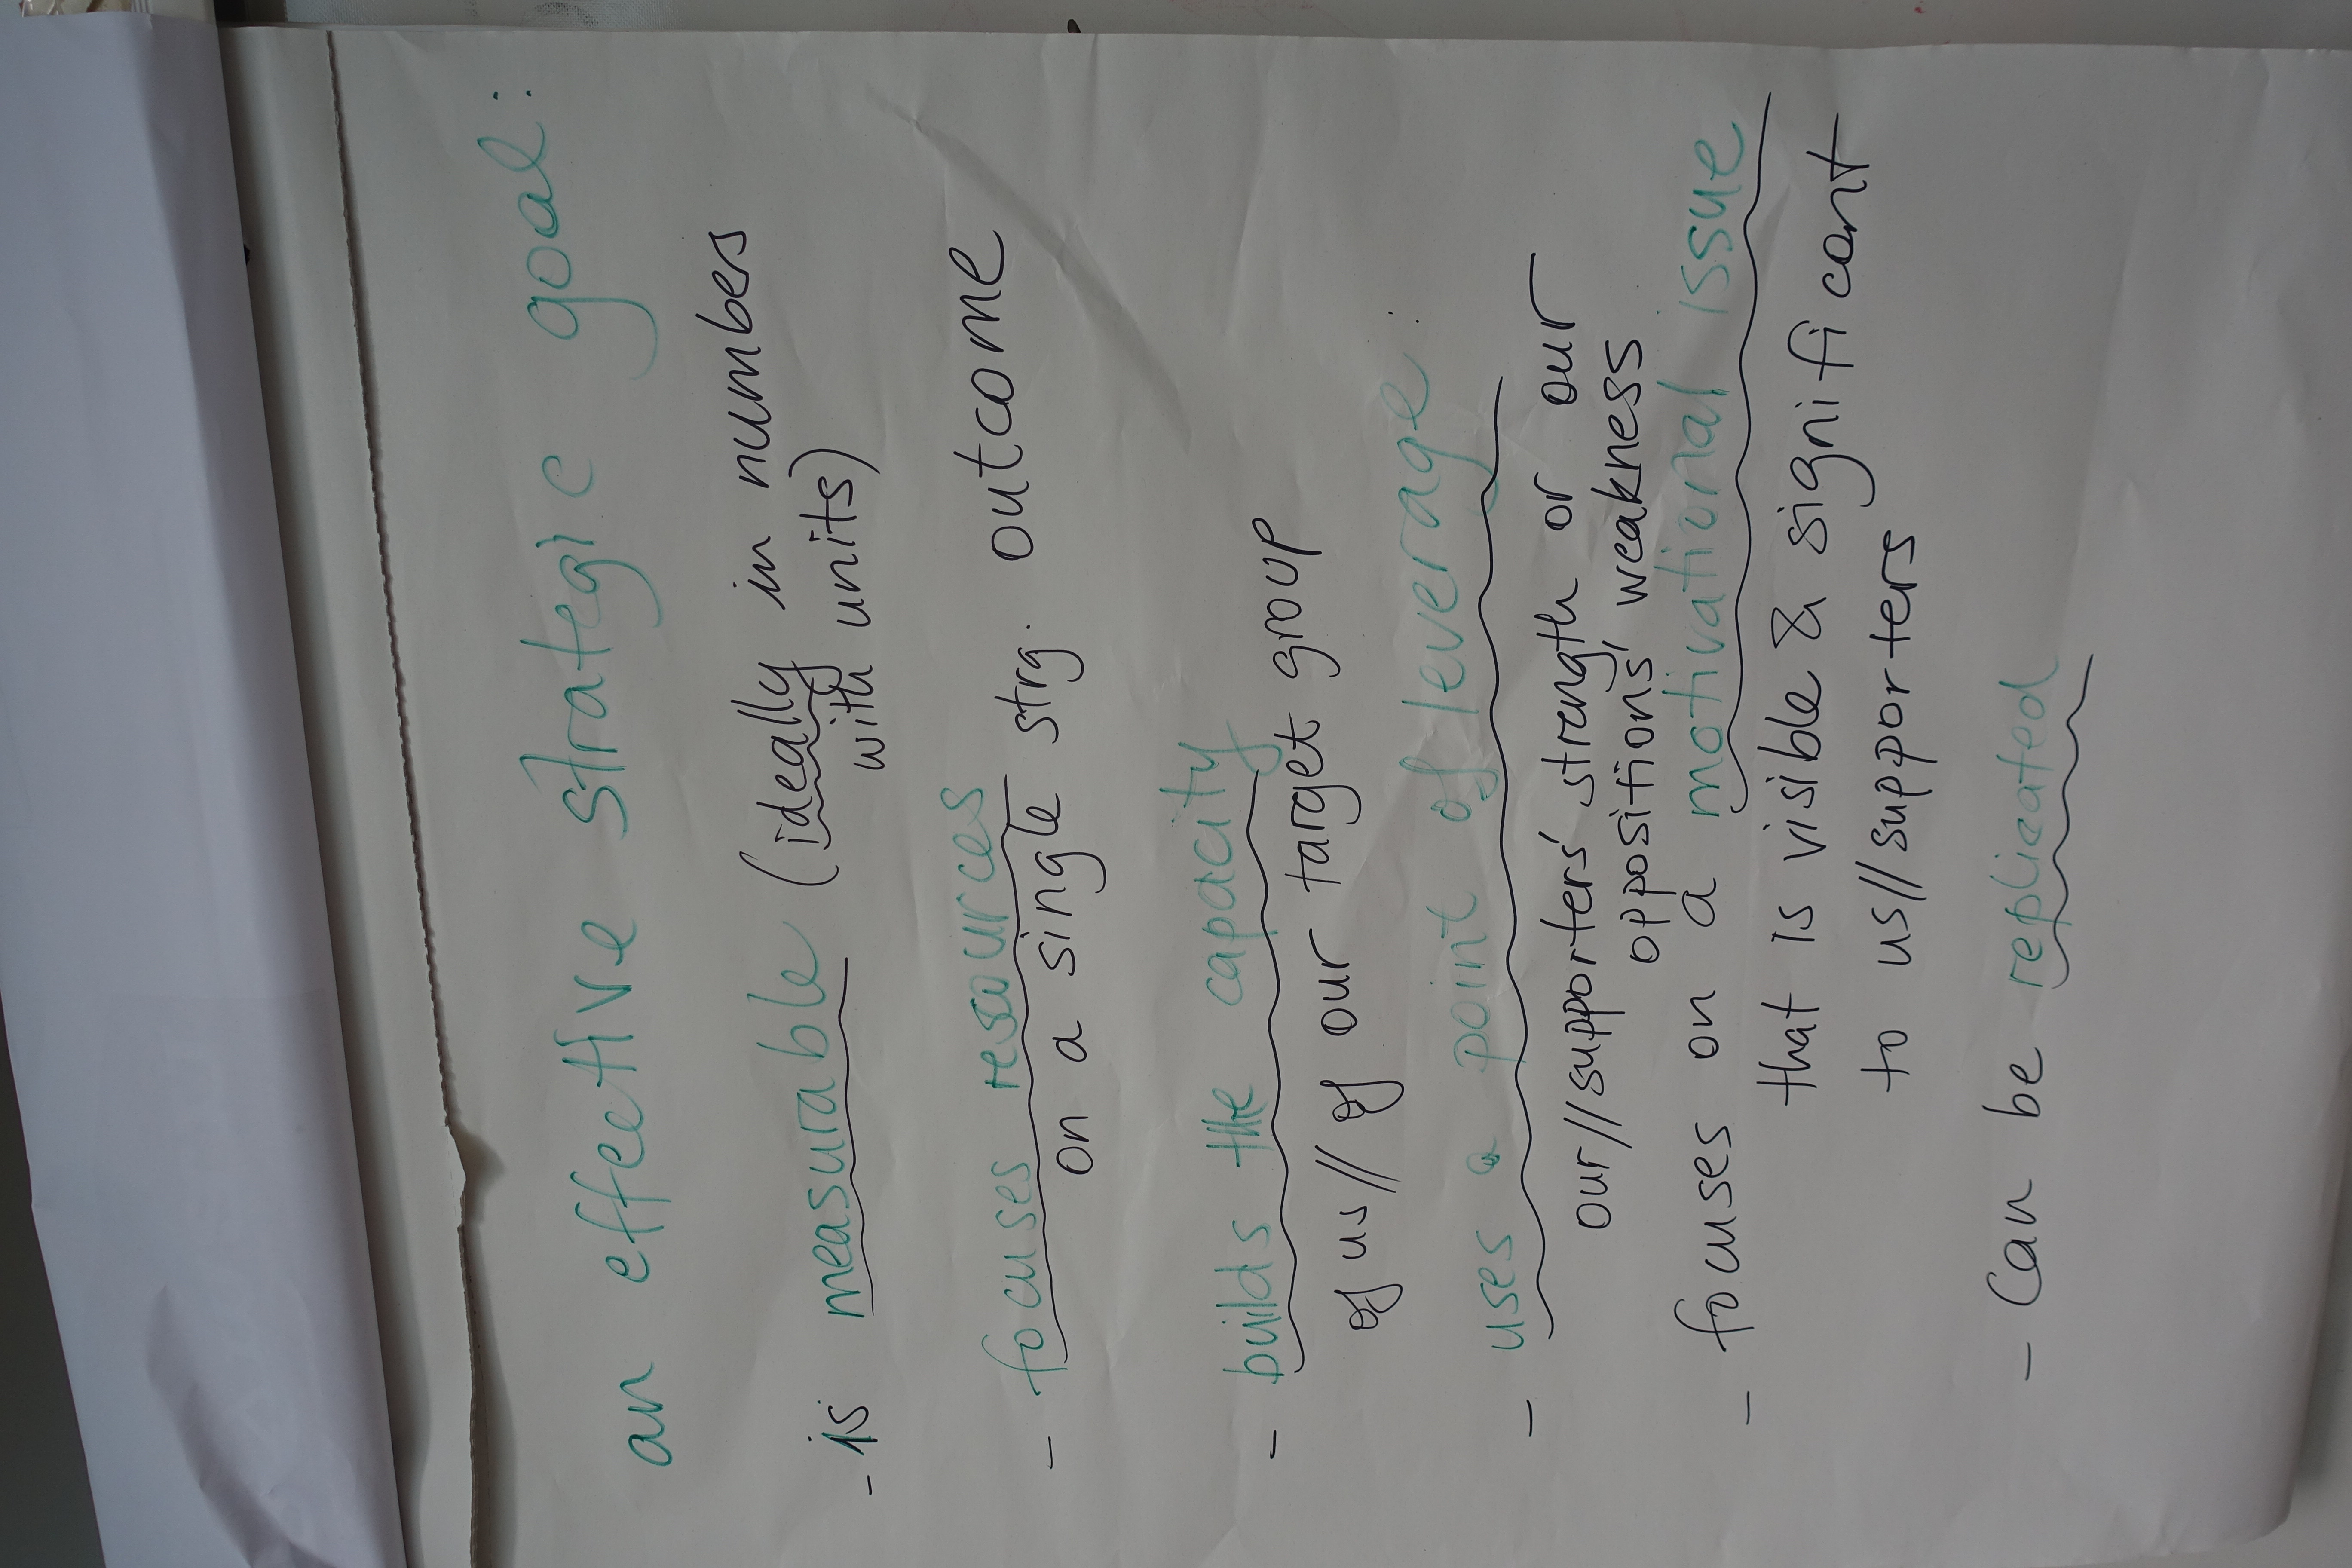 an effective strategic goal:
- is measurable (ideally in numbers
with units)
- focuses resources
on a single strg. outcome
- builds the capacity
of us // of our target group
- uses a point of leverage:
our//supporters' strength or our
oppositions' weakness
- focuses on a motivational issue
that is visible & significant
to us//supporters
- Can be replicated